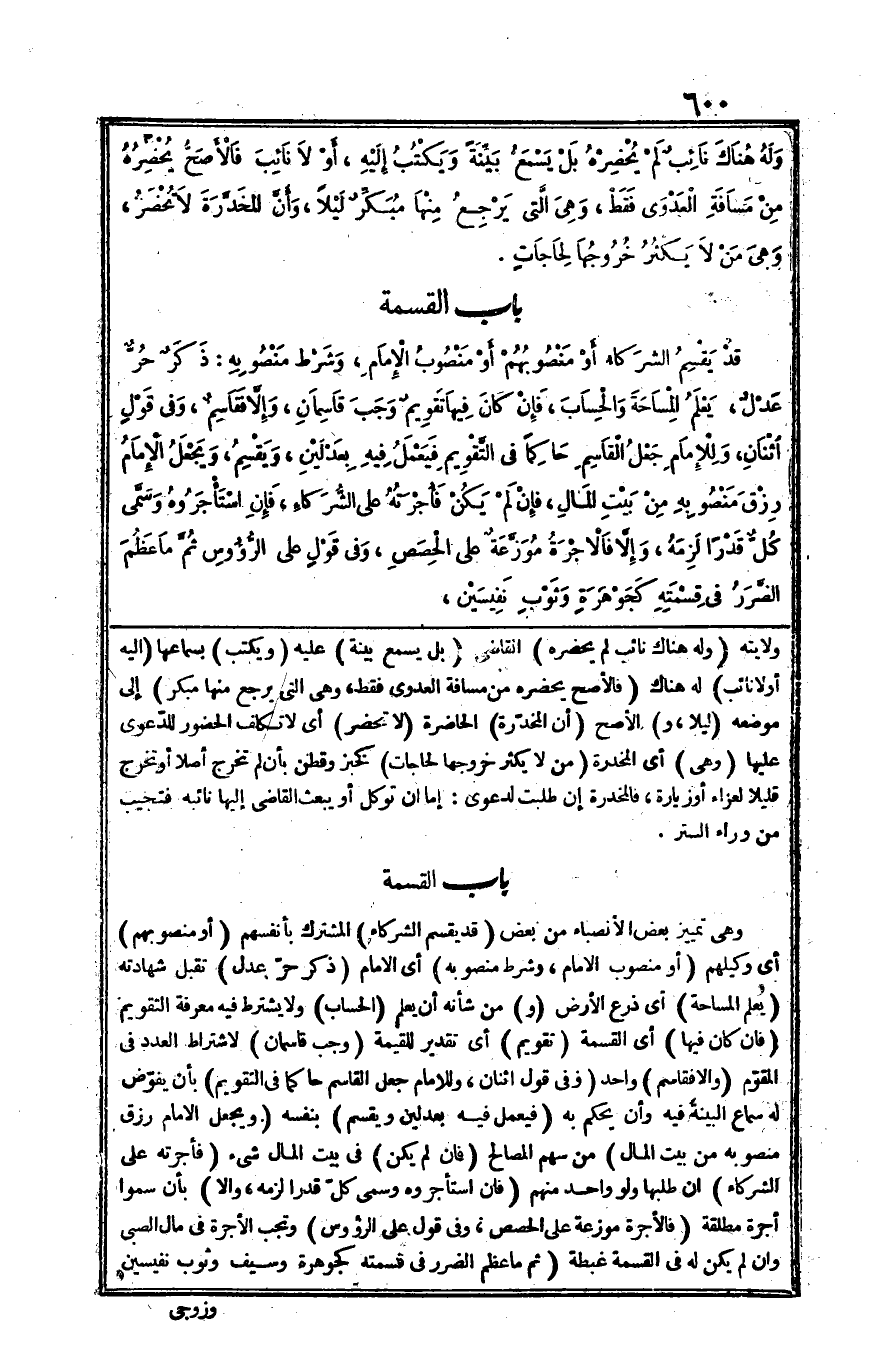 ٦٠٠
وَلَهُ هُنَاكَ نَائِبٌ لَمْ يُحْضِرْهُ بَلْ يَسْمَعُ بَيِّنَةً وَيَكْتُبُ إِلَيْهِ ، أَوْ لاَ نَائِبَ فَالْأَصَحُّ يُحْضِرُهُ
مِنْ مَسَافَةِ الْعَدْوَى فَقَطْ ، وَهِىَ الَّتِى يَرْجِعُ مِنْهَا مُبَكِّرٌ لَيْلاً ، وَأَنَّ المُخَدَّرَةَ لاَ تُحْضَرُ ،
وَهِىَ مَنْ لاَ يَكْثُرُ خُرُوجُهَا لِحَاجَاتٍ .
باب القسمة
قَدْ يَقْسِمُ الشركاء أَوْ مَنْصُوبُهُمْ أَوْ مَنْصُوبُ الْإِمَامِ ، وَشَرْط مَنْصُوبِهِ : ذَكَرٌ حُرٌّ
عَدْلٌ ، يَعْلَمُ الْمِسَاحَةَ وَالْحِسَابَ ، فَإِنْ كَانَ فِيهَا تَقْوِيمٌ وَجَبَ قَاسِمَانِ ، وَإِلَّا فَقَاسِمٌ ، وَفى قَوْلٍ
اُثْنَانِ ، وَلِلْإِمَامِ جَعْلُ الْقَاسِمِ حَاكِماً فى التَّقْوِيمِ فَيَعْمَلُ فِيهِ بِعَدْلَيْنِ ، وَيَقْسِمُ ، وَيَجْعَلُ الْإِمَامُ
رِزْقَ مَنْصُوبِهِ مِنْ بَيْتِ الْمَالِ ، فَإِنْ لَمْ يَكُنْ فَأُجْرَتُهُ على الشُّرَكَاءِ ، فَإِنِ اسْتَأْجَرُوهُ وَسَمَّى
كُلٌّ قَدْرًا لَزِمَهُ ، وَإِلَّا فَالْاجْرَةُ مُوَزَّعَةٌ على الْحِصَصِ ، وَفى قَوْلٍ على الرُّؤُوسِ ثُمَّ مَا عَظُمَ
الضَّرَرُ فى قِسْمَتِهِ كَجَوْهَرَةٍ وَثَوْبٍ نَفِيسَيْنِ ،
ولايته ( وله هناك نائب لم يحضره ) القاضى ( بل يسمع بينة ) عليه ( ويكتب ) بسماعها (اليه
أولانائب) له هناك ( فالأصح يحضره من مسافة العدوى فقط ، وهى التى يرجع منها مبكر ) إلى
موضعه (ليلا ، و) الأصح ( أن المخدّرة) الحاضرة (لا تحضر) أى لا تكلف الحضور للدّعوى
عليها ( وهى ) أى المخدرة ( من لا يكثر خروجها لحاجات) كخبز وقطن بأن لم تخرج أصلا أو تخرج
قليلا لعزاء أو زيارة ، فالمخدرة إن طلبت لدعوى : إما ان توكل أو يبعث القاضى إليها نائبه فتجيب
من وراء الستر .
باب القسمة
وهى تمييز بعض الأنصباء من بعض ( قد يقسم الشركاء ) المشترك بأنفسهم ( أو منصوبهم )
أى وكيلهم ( أو منصوب الامام ، وشرط منصوبه ) أى الامام ( ذكر حرّ عدل ) تقبل شهادته
( يُعلم المساحة ) أى ذرع الأرض (و) من شأنه أن يعلم (الحساب) ولا يشترط فيه معرفة التقويم
( فان كان فيها ) أى القسمة ( تقويم ) أى تقدير للقيمة ( وجب قاسمان ) لاشتراط العدد فى
المقوّم (والا فقاسم) واحد ( وفى قول اثنان ، وللامام جعل القاسم حاكما فى التقويم) بأن يفوّض
له سماع البينة فيه وأن يحكم به ( فيعمل فيه بعدلين ويقسم ) بنفسه ( ويجعل الامام رزق
منصوبه من بيت المال ) من سهم المصالح ( فان لم يكن ) فى بيت المال شىء ( فأجرته على
الشركاء ) ان طلبها ولو واحد منهم ( فان استأجروه وسمى كلّ قدرا لزمه ، والا ) بأن سموا
أجرة مطلقة ( فالأجرة موزعة على الحصص ، وفى قول على الرؤوس ) وتجب الأجرة فى مال الصبى
وان لم يكن له فى القسمة غبطة ( ثم ما عظم الضرر فى قسمته كجوهرة وسيف وثوب نفيسين
وزوجى